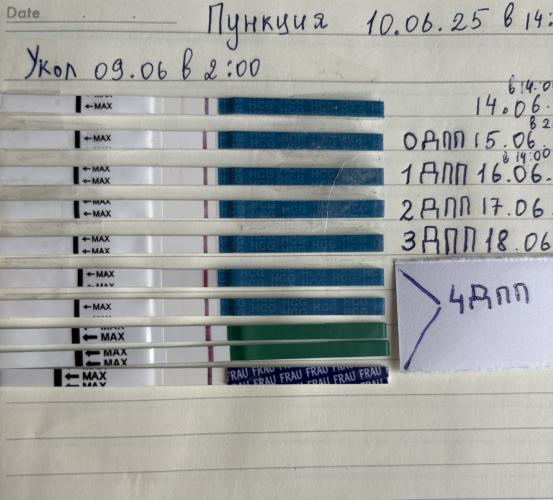 Date
Пункция 10.06.25 в 14:
Укол 09.06 в 2:00
в 14:0
14.06.
←MAX
в 2
0ДПП 15.06.
←MAX HCG HCG HCG
в 14:00
1ДПП 16.06.
←MAX HCG HCG HCG
2ДПП 17.06
←MAX HCG HCG HCG
3ДПП 18.06
←MAX HCG HCG HCG
←MAX HCG HCG HCG
4ДПП
←MAX HCG HCG HCG
←MAX
←MAX
←MAX FRAU FRAU FRAU FRAU FRAU FRAU